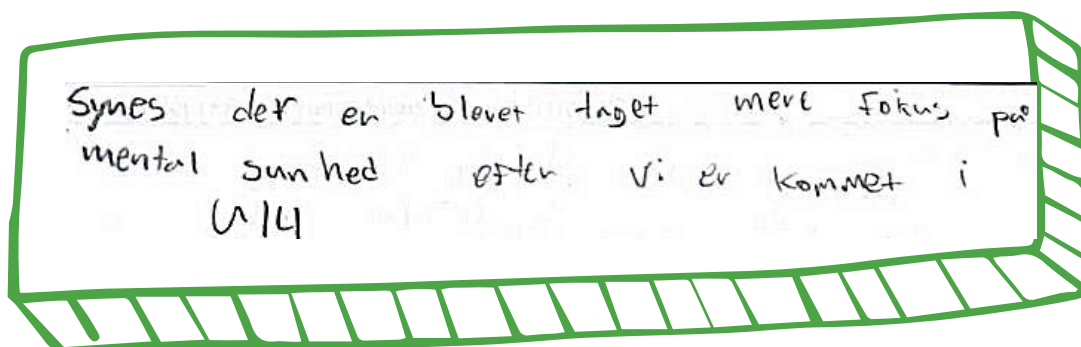 Synes der er blevet taget mere fokus på
mental sunhed efter vi er kommet i
U14